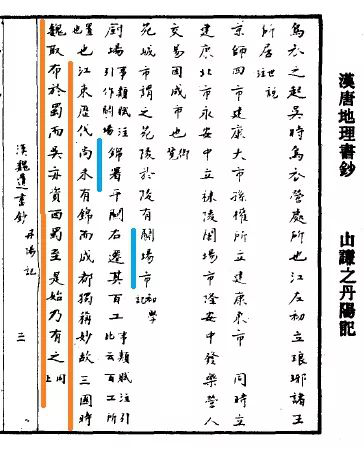 漢唐地理書鈔　山謙之丹陽記
烏衣之起吳時烏衣營處所也江左初立琅邪諸王
所居世說注
京師四市建康大市孫權所立建康東市同時立
建康北市永安中立秣陵鬭場市隆安中發樂營人
交易因成市也御覽
苑城市謂之苑陵於陵有鬭場市初學記
廚場事類賦注引作鬭場錦署平關右遷其百工事類賦注引此云百工所
置也江東歷代尚未有錦而成都獨稱妙故三國時
魏取布於蜀而吳亦資西蜀至是始乃有之同上
漢魏遺書鈔　丹陽記　三